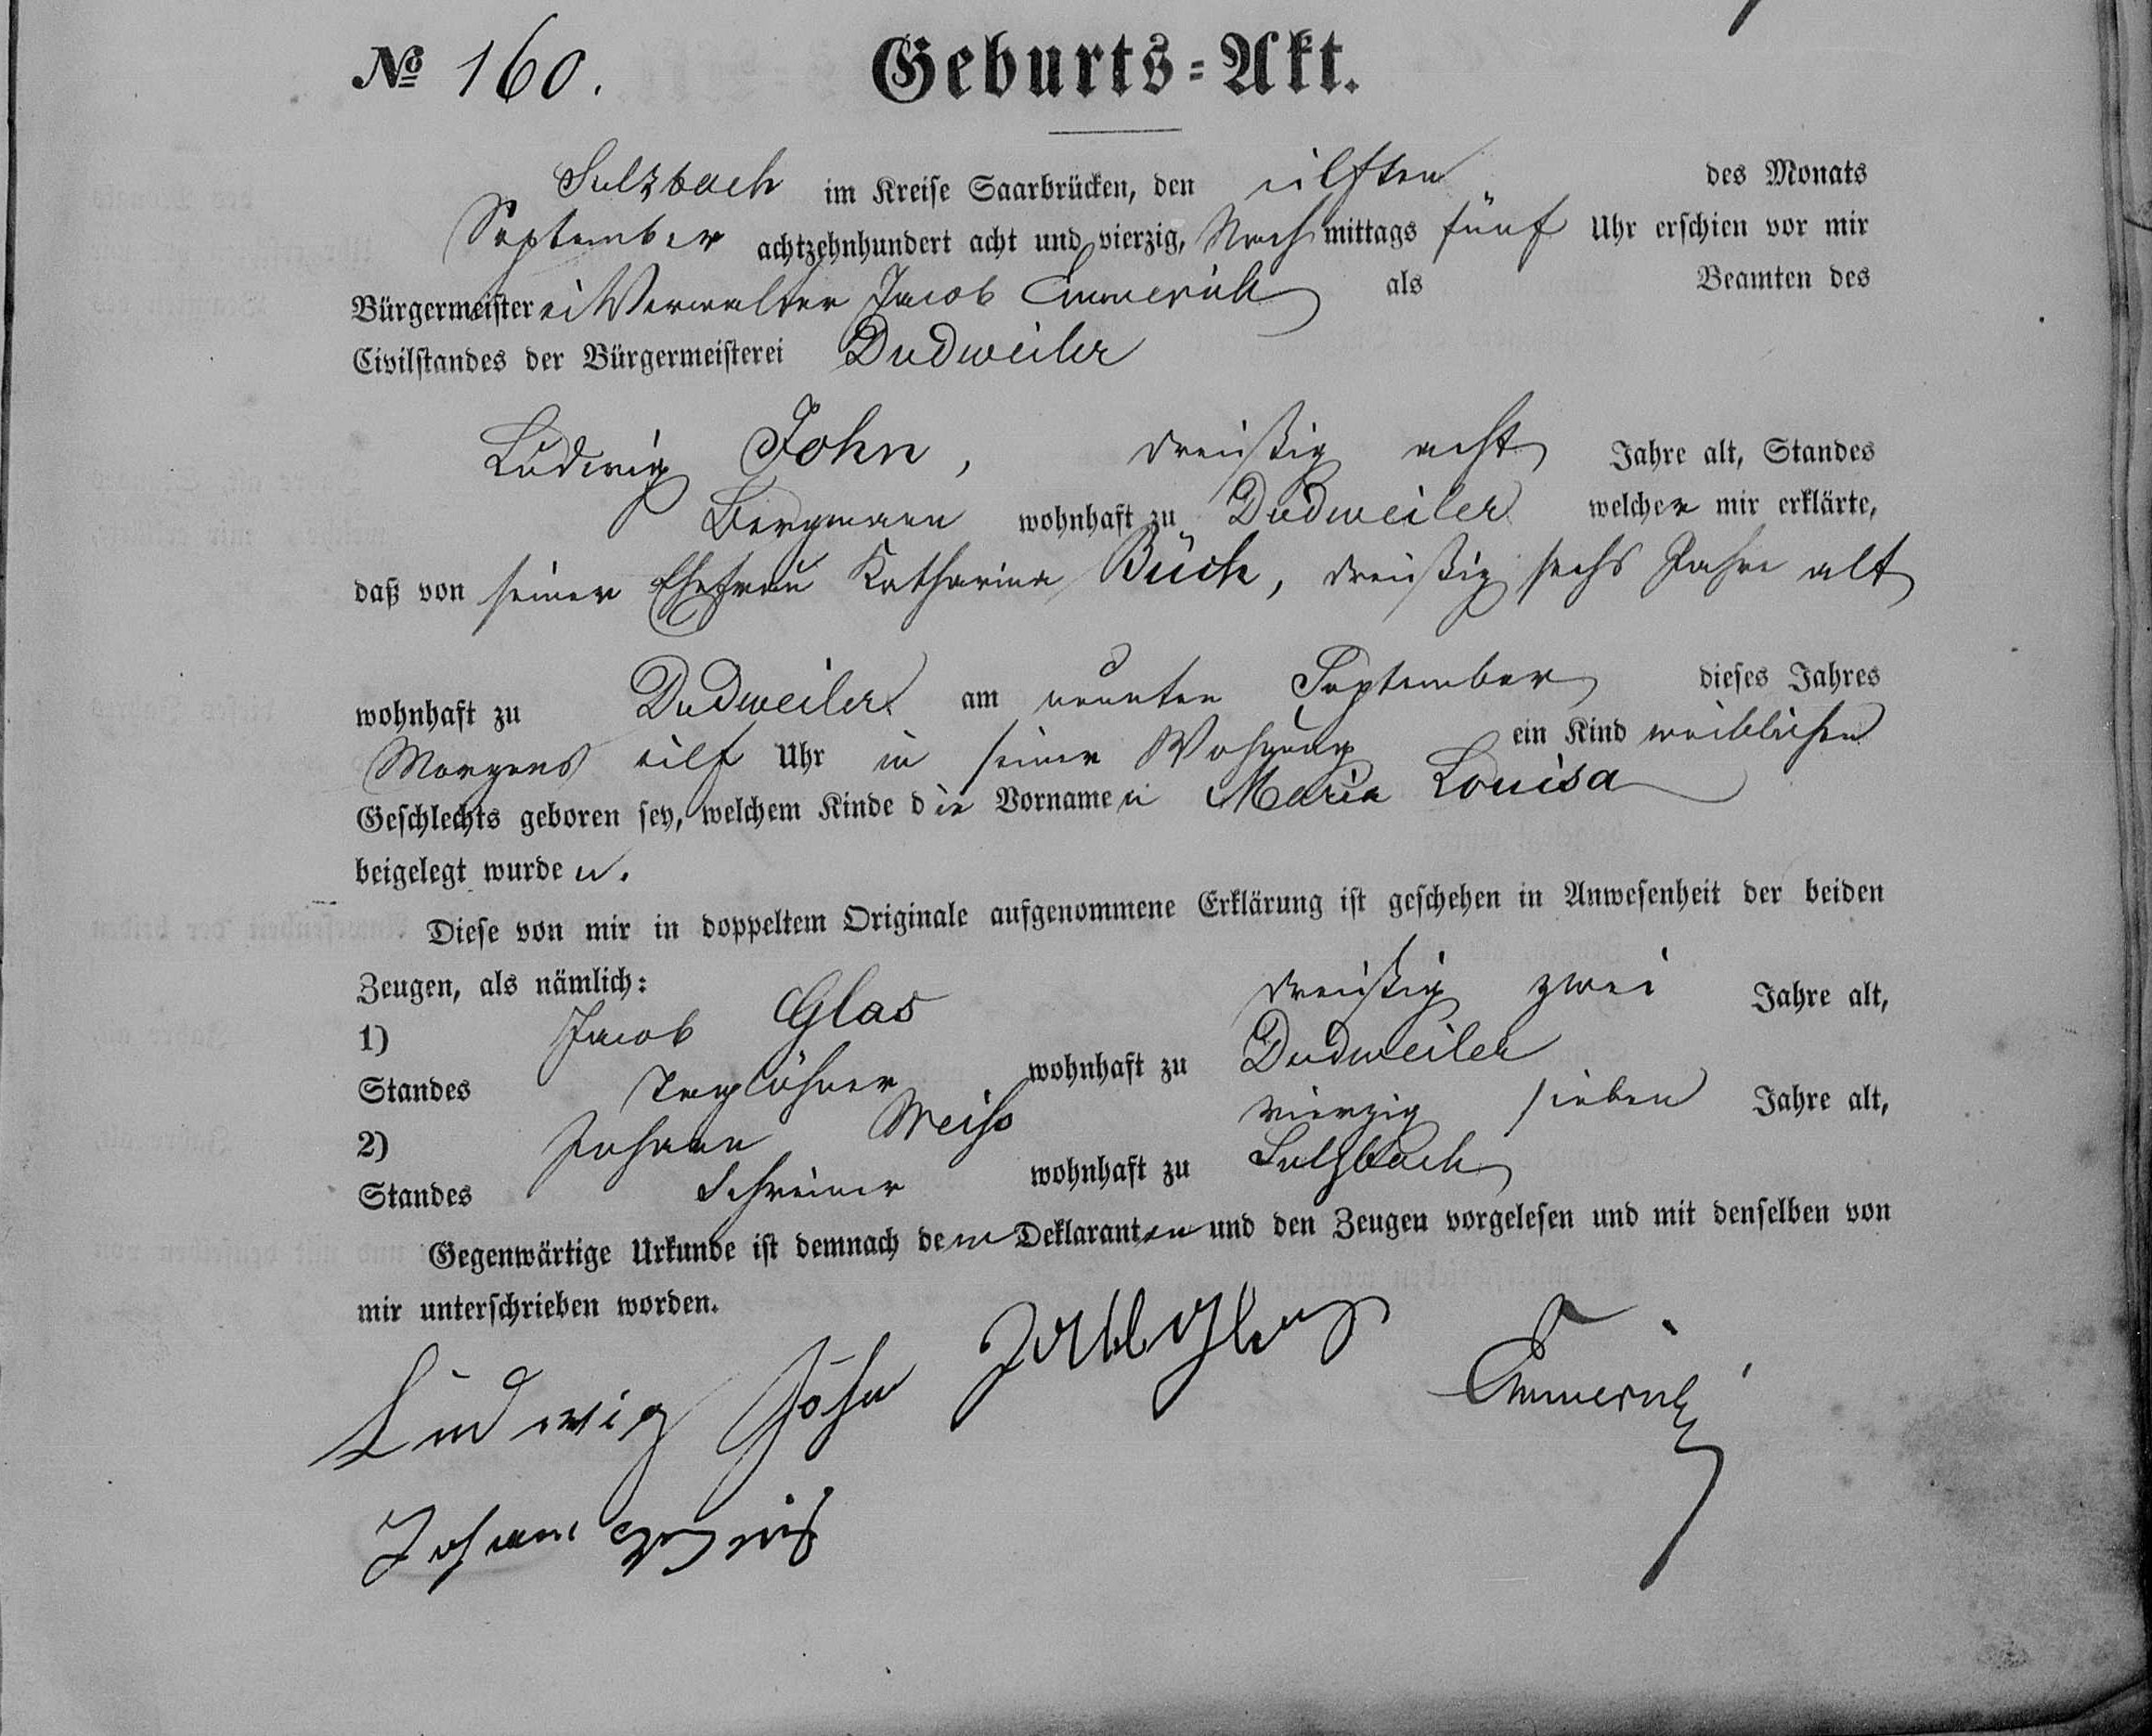 № 160. Geburts-Akt.
Sulzbach im Kreise Saarbrücken, den eilften des Monats
September achtzehnhundert acht und vierzig, Nachmittags fünf Uhr erschien vor mir
Bürgermeisterei Verwalter Jacob Emmerich als Beamten des
Civilstandes der Bürgermeisterei Dudweiler
Ludwig John, dreißig acht Jahre alt, Standes
Bergmann wohnhaft zu Dudweiler welcher mir erklärte,
daß von seiner Ehefrau Katharina Büch, dreißig sechs Jahre alt
wohnhaft zu Dudweiler am neunten September dieses Jahres
Morgens eilf Uhr in seiner Wohnung ein Kind weiblichen
Geschlechts geboren sey, welchem Kinde die Vornamen Maria Louisa
beigelegt wurden.
Diese von mir in doppeltem Originale aufgenommene Erklärung ist geschehen in Anwesenheit der beiden
Zeugen, als nämlich:
1) Jacob Glas dreißig zwei Jahre alt,
Standes Taglöhner wohnhaft zu Dudweiler
2) Johann Weiss vierzig sieben Jahre alt,
Standes Schreiner wohnhaft zu Sulzbach
Gegenwärtige Urkunde ist demnach dem Deklaranten und den Zeugen vorgelesen und mit denselben von
mir unterschrieben worden.
Ludwig John Jacob Glas Emmerich
Johann Weiß